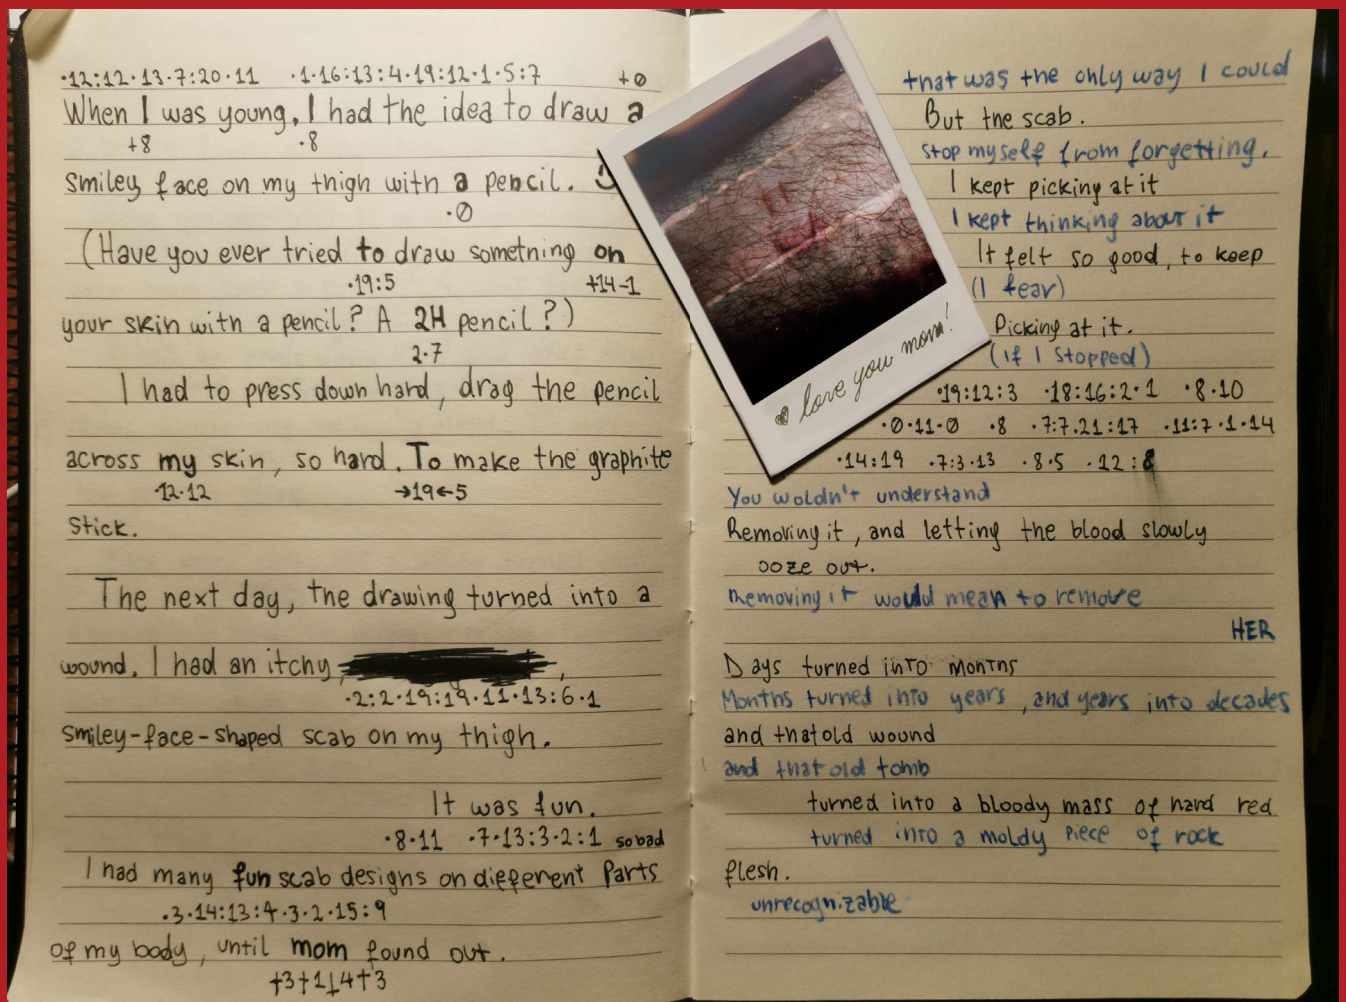 ·12:12·13·7:20·11 ·1·16:13:4·19:12·1·5:7 +0
When I was young, I had the idea to draw a
+8 ·8
smiley face on my thigh with a pencil.
·0
(Have you ever tried to draw something on
·19:5 +14-1
your skin with a pencil? A 2H pencil?)
2·7
I had to press down hard, drag the pencil
across my skin, so hard. To make the graphite
·12·12 →19←5
stick.
The next day, the drawing turned into a
wound. I had an itchy ,
·2:2·19:19·11·13:6·1
smiley-face-shaped scab on my thigh.
It was fun.
·8·11 ·7·13:3·2:1 so bad
I had many fun scab designs on dieferent parts
·3·14:13:4·3·2·15:9
of my body, until mom found out.
+3+1+4+3
love you mom!
that was the only way I could
But the scab.
stop myself from forgetting.
I kept picking at it
I kept thinking about it
It felt so good, to keep
(I fear)
Picking at it.
(if I stopped)
·19:12:3 ·18:16:2·1 ·8·10
·0·11·0 ·8 ·7:7.21:17 ·11:7·1·14
·14:19 ·7:3·13 ·8·5 ·12:8
You woldn't understand
Removing it, and letting the blood slowly
ooze out.
Removing it would mean to remove
HER
Days turned into months
Months turned into years, and years into decades
and that old wound
and that old tomb
turned into a bloody mass of hard red
turned into a moldy piece of rock
flesh.
unrecognizable